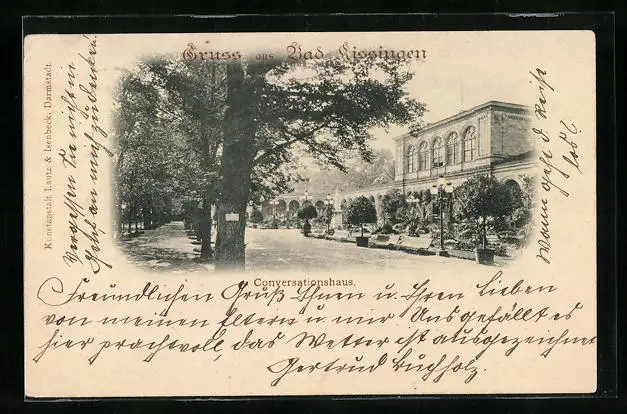 Gruss aus Bad Kissingen
Kunstanstalt Lautz & Isenbeck, Darmstadt.
Vergessen Sie nicht m
geht, an mich zu denken.
Wann geht d. Reise
los?
Conversationshaus.
Freundlichen Gruß Ihnen u. Ihren Lieben
von meinen Eltern u. mir Uns gefällt es
hier prachtvoll, das Wetter ist ausgezeichnet
Gertrud Buchholz.